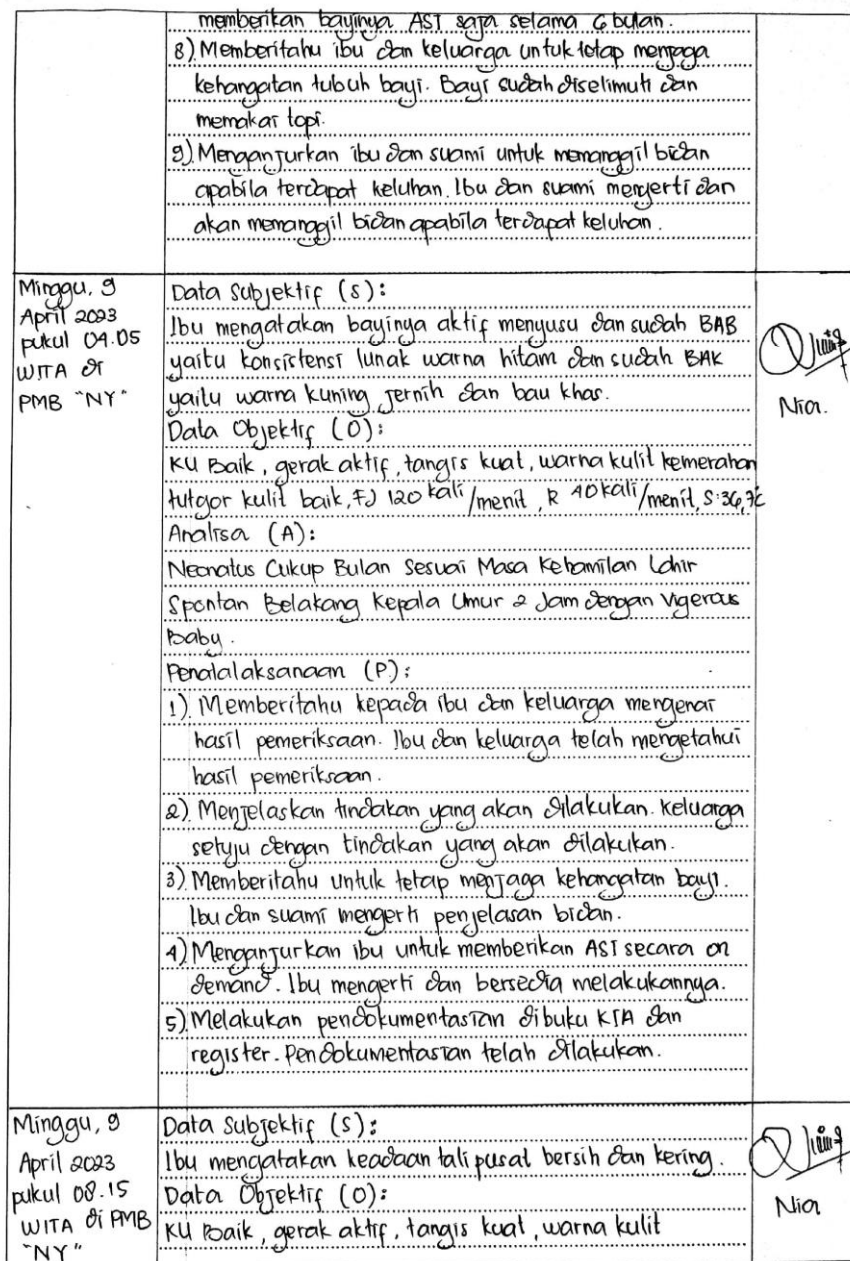 memberikan bayinya ASI saja selama 6 bulan.
8) Memberitahu ibu dan keluarga untuk tetap menjaga
kehangatan tubuh bayi. Bayi sudah diselimuti dan
memakai topi.
9) Menganjurkan ibu dan suami untuk memanggil bidan
apabila terdapat keluhan. Ibu dan suami mengerti dan
akan memanggil bidan apabila terdapat keluhan.
Minggu, 9
April 2023
pukul 04.05
WITA di
PMB "NY"
Data Subjektif (S):
Ibu mengatakan bayinya aktif menyusu dan sudah BAB
yaitu konsistensi lunak warna hitam dan sudah BAK
yaitu warna kuning jernih dan bau khas.
Data Objektif (O):
KU Baik, gerak aktif, tangis kuat, warna kulit kemerahan
tutgor kulit baik, FJ 120 kali/menit, R 40 kali/menit, S: 36,7°c
Analisa (A):
Neonatus Cukup Bulan Sesuai Masa Kehamilan Lahir
Spontan Belakang Kepala Umur 2 Jam dengan Vigerous
Baby.
Penatalaksanaan (P):
1) Memberitahu kepada ibu dan keluarga mengenai
hasil pemeriksaan. Ibu dan keluarga telah mengetahui
hasil pemeriksaan.
2) Menjelaskan tindakan yang akan dilakukan. Keluarga
setuju dengan tindakan yang akan dilakukan.
3) Memberitahu untuk tetap menjaga kehangatan bayi.
Ibu dan suami mengerti penjelasan bidan.
4) Menganjurkan ibu untuk memberikan ASI secara on
demand. Ibu mengerti dan bersedia melakukannya.
5) Melakukan pendokumentasian dibuku KIA dan
register. Pendokumentasian telah dilakukan.
Nia.
Minggu, 9
April 2023
pukul 08.15
WITA di PMB
"NY"
Data Subjektif (S):
Ibu mengatakan keadaan tali pusat bersih dan kering.
Data Objektif (O):
KU Baik, gerak aktif, tangis kuat, warna kulit
Nia